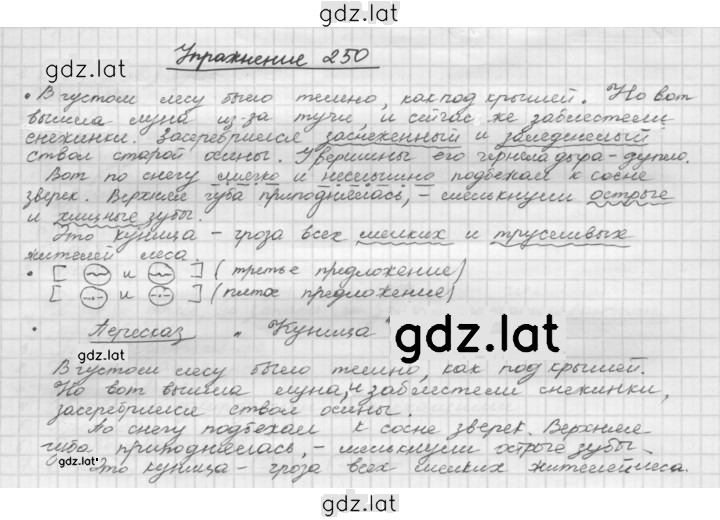 gdz.lat
Упражнение 250
gdz.lat
• В густом лесу было темно, как под крышей. Но вот
вышла луна из-за тучи, и сейчас же заблестели
снежинки. Засеребрился заснеженный и заледенелый
ствол старой осины. У вершины его чернела дыра - дупло.
Вот по снегу мягко и неслышно подбежал к сосне
зверек. Верхняя губа приподнялась, - мелькнули острые
и хищные зубы.
Это куница - гроза всех мелких и трусливых
жителей леса.
• [ и ] (третье предложение)
[ и ] (пятое предложение)
• Пересказ „Куница"
gdz.lat
gdz.lat
В густом лесу было темно, как под крышей.
Но вот вышла луна, и заблестели снежинки,
засеребрился ствол осины.
По снегу подбежал к сосне зверек. Верхняя
губа приподнялась, - мелькнули острые зубы.
gdz.lat
Это куница - гроза всех мелких жителей леса.
gdz.lat